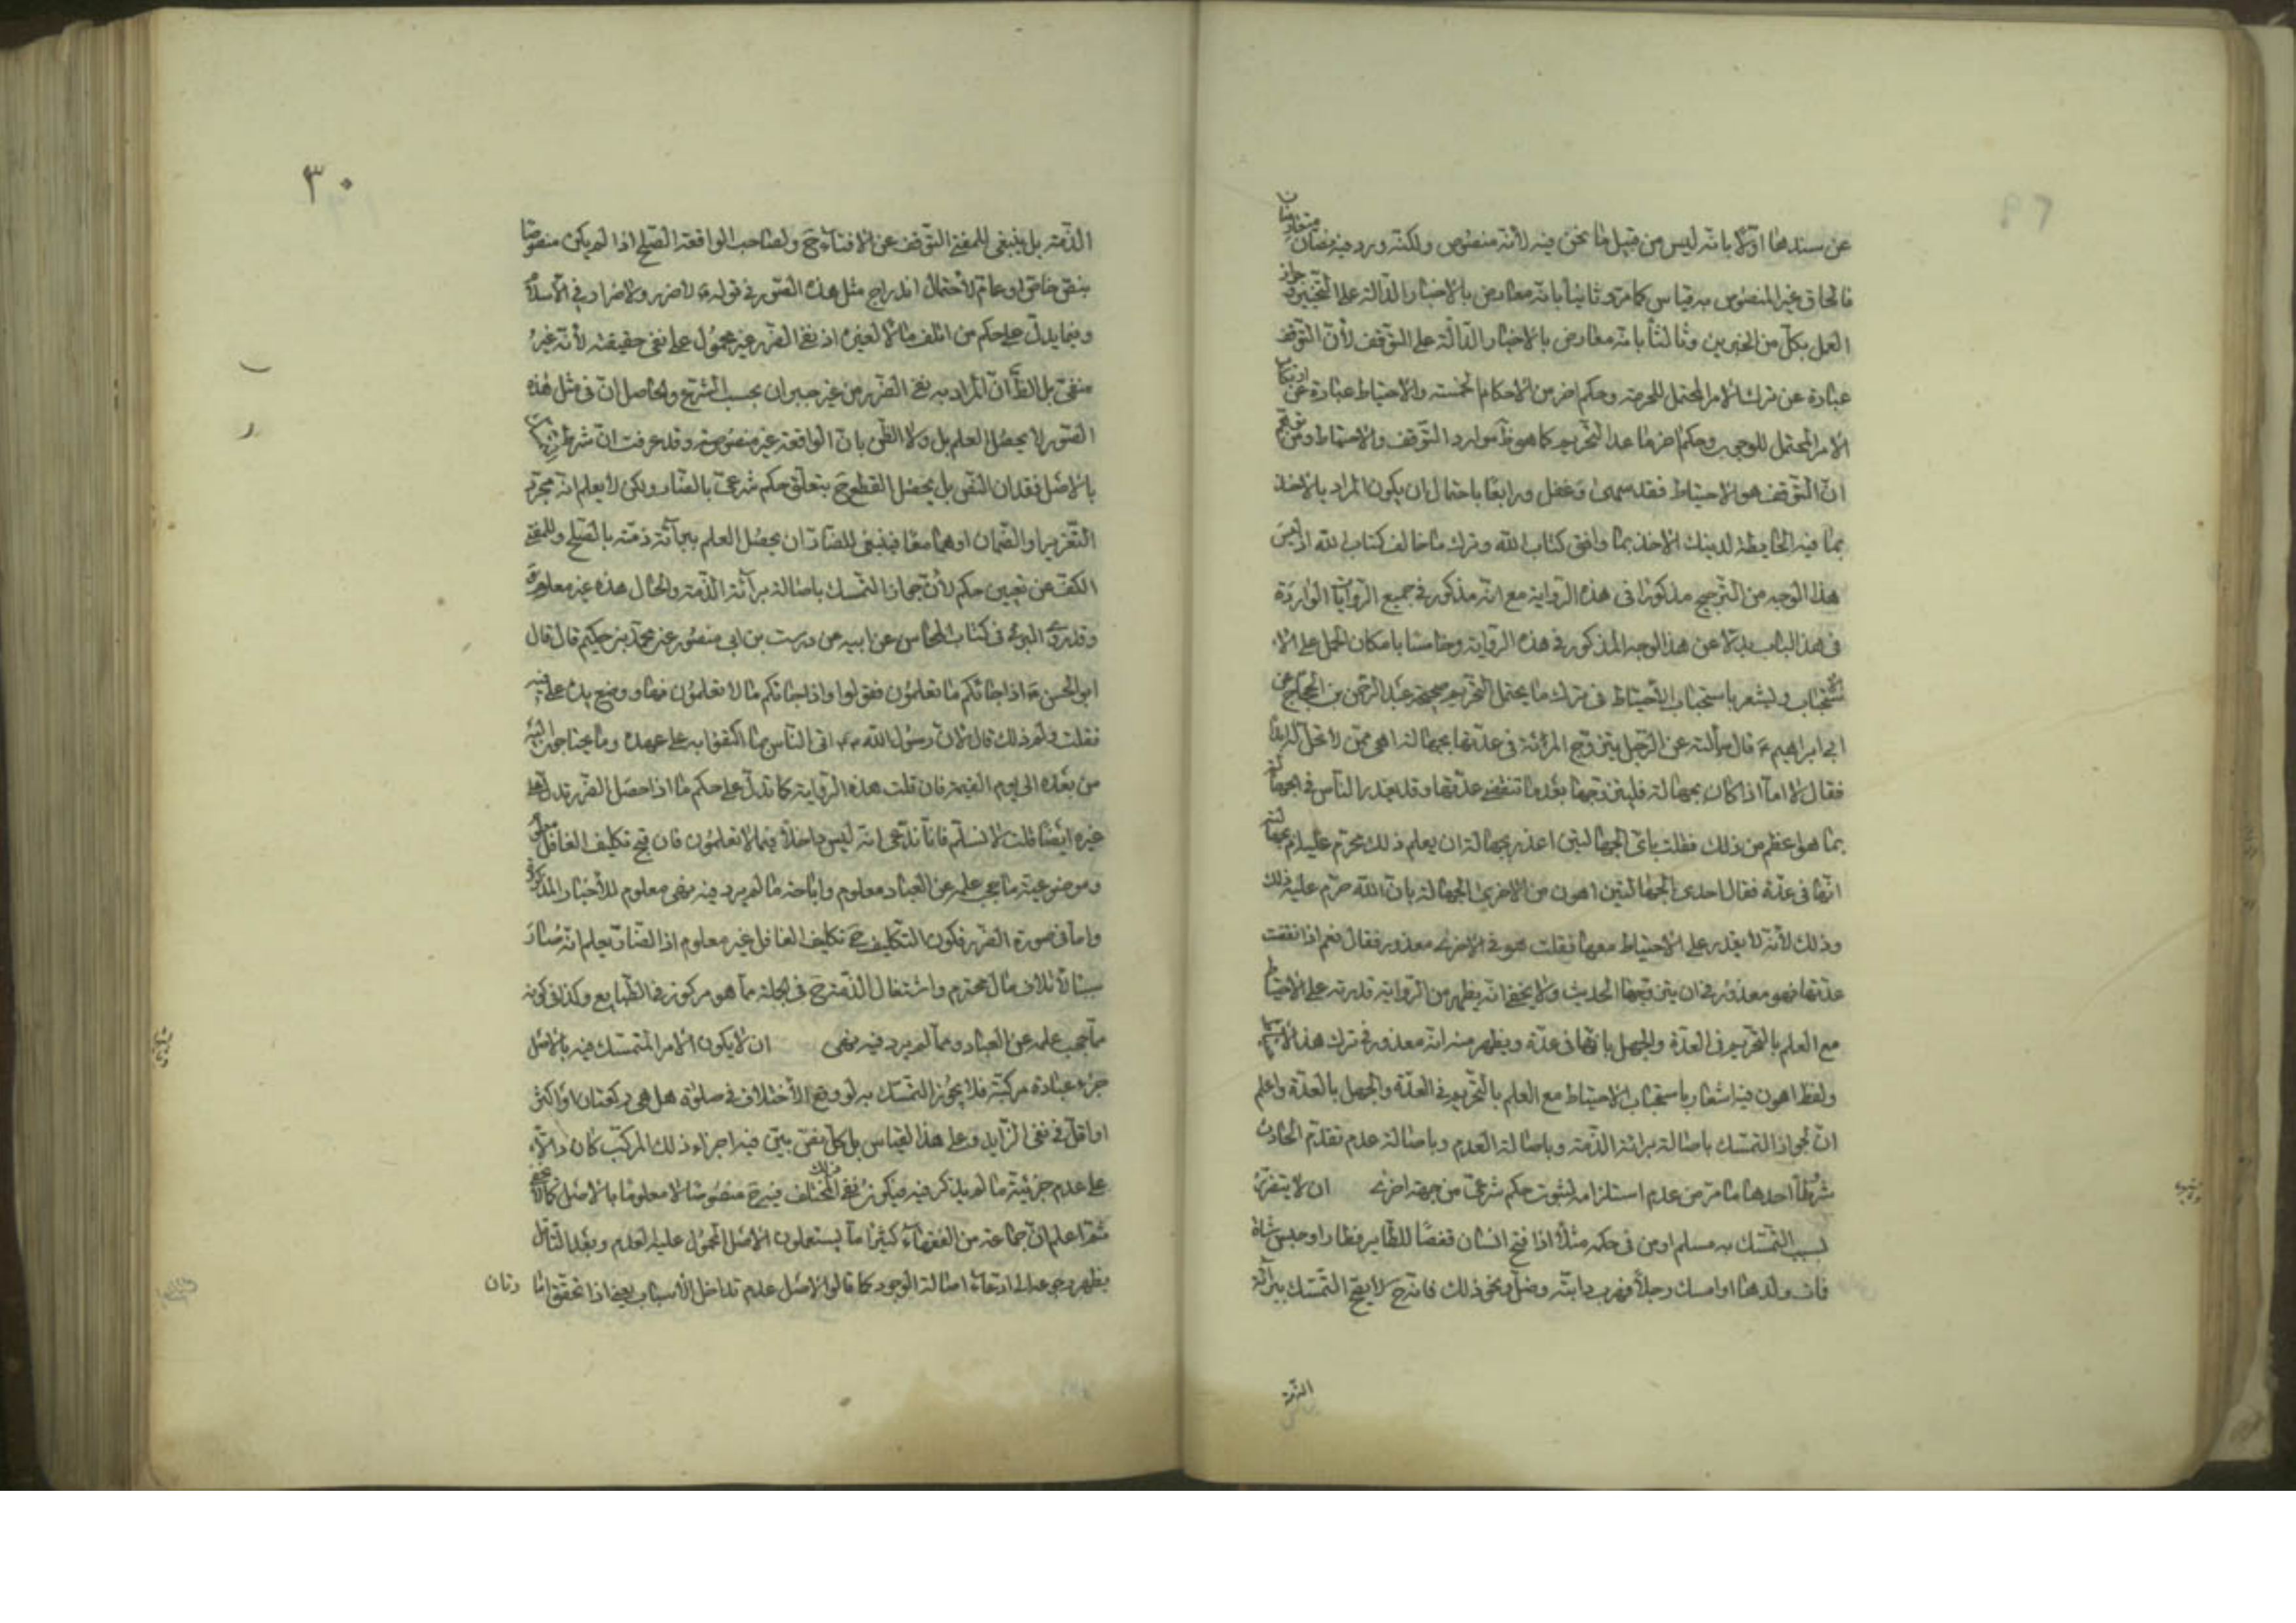 عن سندهما اولا بانه ليس من قبيل ما نحن فيه لانه منصوص ولكنه ورد فيه نصان متعارضان
فالحاق غير المنصوص به قياس كما مر وثانيا بانه معارض بالاخبار الدالة على التخيير وجواز
العمل بكل من الخبرين وثالثا بانه معارض بالاخبار الدالة على التوقف لان التوقف
عبارة عن ترك الامر المحتمل للحرمة وحكم اخر من الاحكام الخمسة والاحتياط عبارة عن ارتكاب
الامر المحتمل للوجوب وحكم اخر ما عدا التحريم كما هو ظ موارد التوقف والاحتياط ومن توهم
ان التوقف هو الاحتياط فقد سهى وغفل ورابعا باحتمال ان يكون المراد بالاخذ
بما فيه الحايطة لدينك الاخذ بما وافق كتاب الله وترك ما خالف كتاب الله اذ ليس
هذا الوجه من الترجيح مذكورا فى هذه الرواية مع انه مذكور فى جميع الروايات الواردة
فى هذا الباب بدلا عن هذا الوجه المذكور فى هذه الرواية وخامسا بامكان الحمل على الا
ستحباب ويشعر باستحباب الاحتياط فى ترك ما يحتمل التحريم صحيحة عبد الرحمن بن الحجاج عن
ابى ابراهيم ع قال سألته عن الرجل يتزوج المرئة فى عدتها بجهالة اهى ممن لا تحل له ابدا
فقال لا اما اذا كان بجهالة فليتزوجها بعد ما تنقضى عدتها وقد يعذر الناس فى الجهالة
بما هو اعظم من ذلك فقلت باى الجهالتين اعذر بجهالته ان يعلم ذلك محرم عليه ام بجهالته
انها فى عدة فقال احدى الجهالتين اهون من الاخرى الجهالة بان الله حرم عليه ذلك
وذلك لانه لا يقدر على الاحتياط معها فقلت هو فى الاخرى معذور فقال نعم اذا انقضت
عدتها فهو معذور فى ان يتزوجها الحديث ولا يخفى انه يظهر من الرواية قدرته على الاحتياط
مع العلم بالتحريم فى العدة والجهل بانها فى عدة ويظهر منه انه معذور فى ترك هذا الاحتياط
ولفظ اهون فيه اشعار باستحباب الاحتياط مع العلم بالتحريم فى العدة والجهل بالعدة واعلم
ان لجواز التمسك باصالة برائة الذمة وباصالة العدم وباصالة عدم تقدم الحادث
شروطا احدها ما مر من عدم استلزامه لثبوت حكم شرعى من جهة اخرى ان لا يتضرر
بسبب التمسك به مسلم او من فى حكمه مثلا اذا فتح انسان قفصا للطاير فطار او حبس شاة
فمات ولدها او امسك رجلا فهرب دابته وضل ونحو ذلك فانه ح لا يصح التمسك ببرائة
الذمة
٣٠
الذمة بل ينبغى للمفتى التوقف عن الافتاء ح ولصاحب الواقعة الصلح اذا لم يكن منصوصا
بنص خاص او عام لاحتمال اندراج مثل هذه الصور فى قوله ع لا ضرر ولا ضرار فى الاسلام
وفيما يدل على حكم من اتلف مالا لغيره اذ نفى الضرر غير محمول على نفى حقيقته لانه غير
منفى بل الظ ان المراد به نفى الضرر من غير جبران بحسب الشرع والحاصل ان فى مثل هذه
الصور لا يحصل العلم بل ولا الظن بان الواقعة غير منصوصة وقد عرفت ان شرط التمسك
بالاصل فقدان النص بل يحصل القطع ح بتعلق حكم شرعى بالضار ولكن لا يعلم انه مجرد
التعزير او الضمان او هما معا فينبغى للضار ان يحصل العلم ببرائة ذمته بالصلح وللمفتى
الكف عن تعيين حكم لان جواز التمسك باصالة برائة الذمة والحال هذه غير معلوم
وقد روى البرقى فى كتاب المحاسن عن ابيه عن درست بن ابى منصور عن محمد بن حكيم قال قال
ابو الحسن ع اذا جائكم ما تعلمون فقولوا واذا جائكم ما لا تعلمون فها ووضع يده على فيه
فقلت ولم ذلك قال لان رسول الله ص اتى الناس بما اكتفوا به على عهده وما يحتاجون اليه
من بعده الى يوم القيمة فان قلت هذه الرواية كما تدل على حكم ما اذا حصل الضرر تدل على
غيره ايضا قلت لا نسلم فانا ندعى انه ليس داخلا فيما لا تعلمون فان قبح تكليف الغافل معلوم
وموضوعية ما حجب علمه عن العباد معلوم واباحة ما لم يرد فيه نهى معلوم للاخبار المذكورة
واما فى صورة الضرر فكون التكليف ح تكليف الغافل غير معلوم اذ الضار يعلم انه صار
سببا لاتلاف مال محترم واشتغال الذمة ح فى الجملة مما هو مركوز فى الطبايع وكذا فى كونه
مما حجب علمه عن العباد ومما لم يرد فيه نهى ان لا يكون الامر المتمسك فيه بالاصل
جزء عبادة مركبة فلا يجوز التمسك به لو وقع الاختلاف فى صلوة هل هى ركعتان او اكثر
او اقل فى نفى الزايد وعلى هذا القياس بل كل نص بين فيه اجزاء ذلك المركب كان دالا
على عدم جزئية ما لم يذكر فيه فيكون نفى ذلك المختلف فيه ح منصوصا لا معلوما بالاصل كما لا يخفى
ثم اعلم ان جماعة من الفقهاء كثيرا ما يستعملون الاصل المحمول عليه العدم وبعد التأمل
يظهر رجوعه الى ادعاء اصالة الوجود كما قالوا الاصل عدم تداخل الاسباب يعنى اذا تحقق اثنا